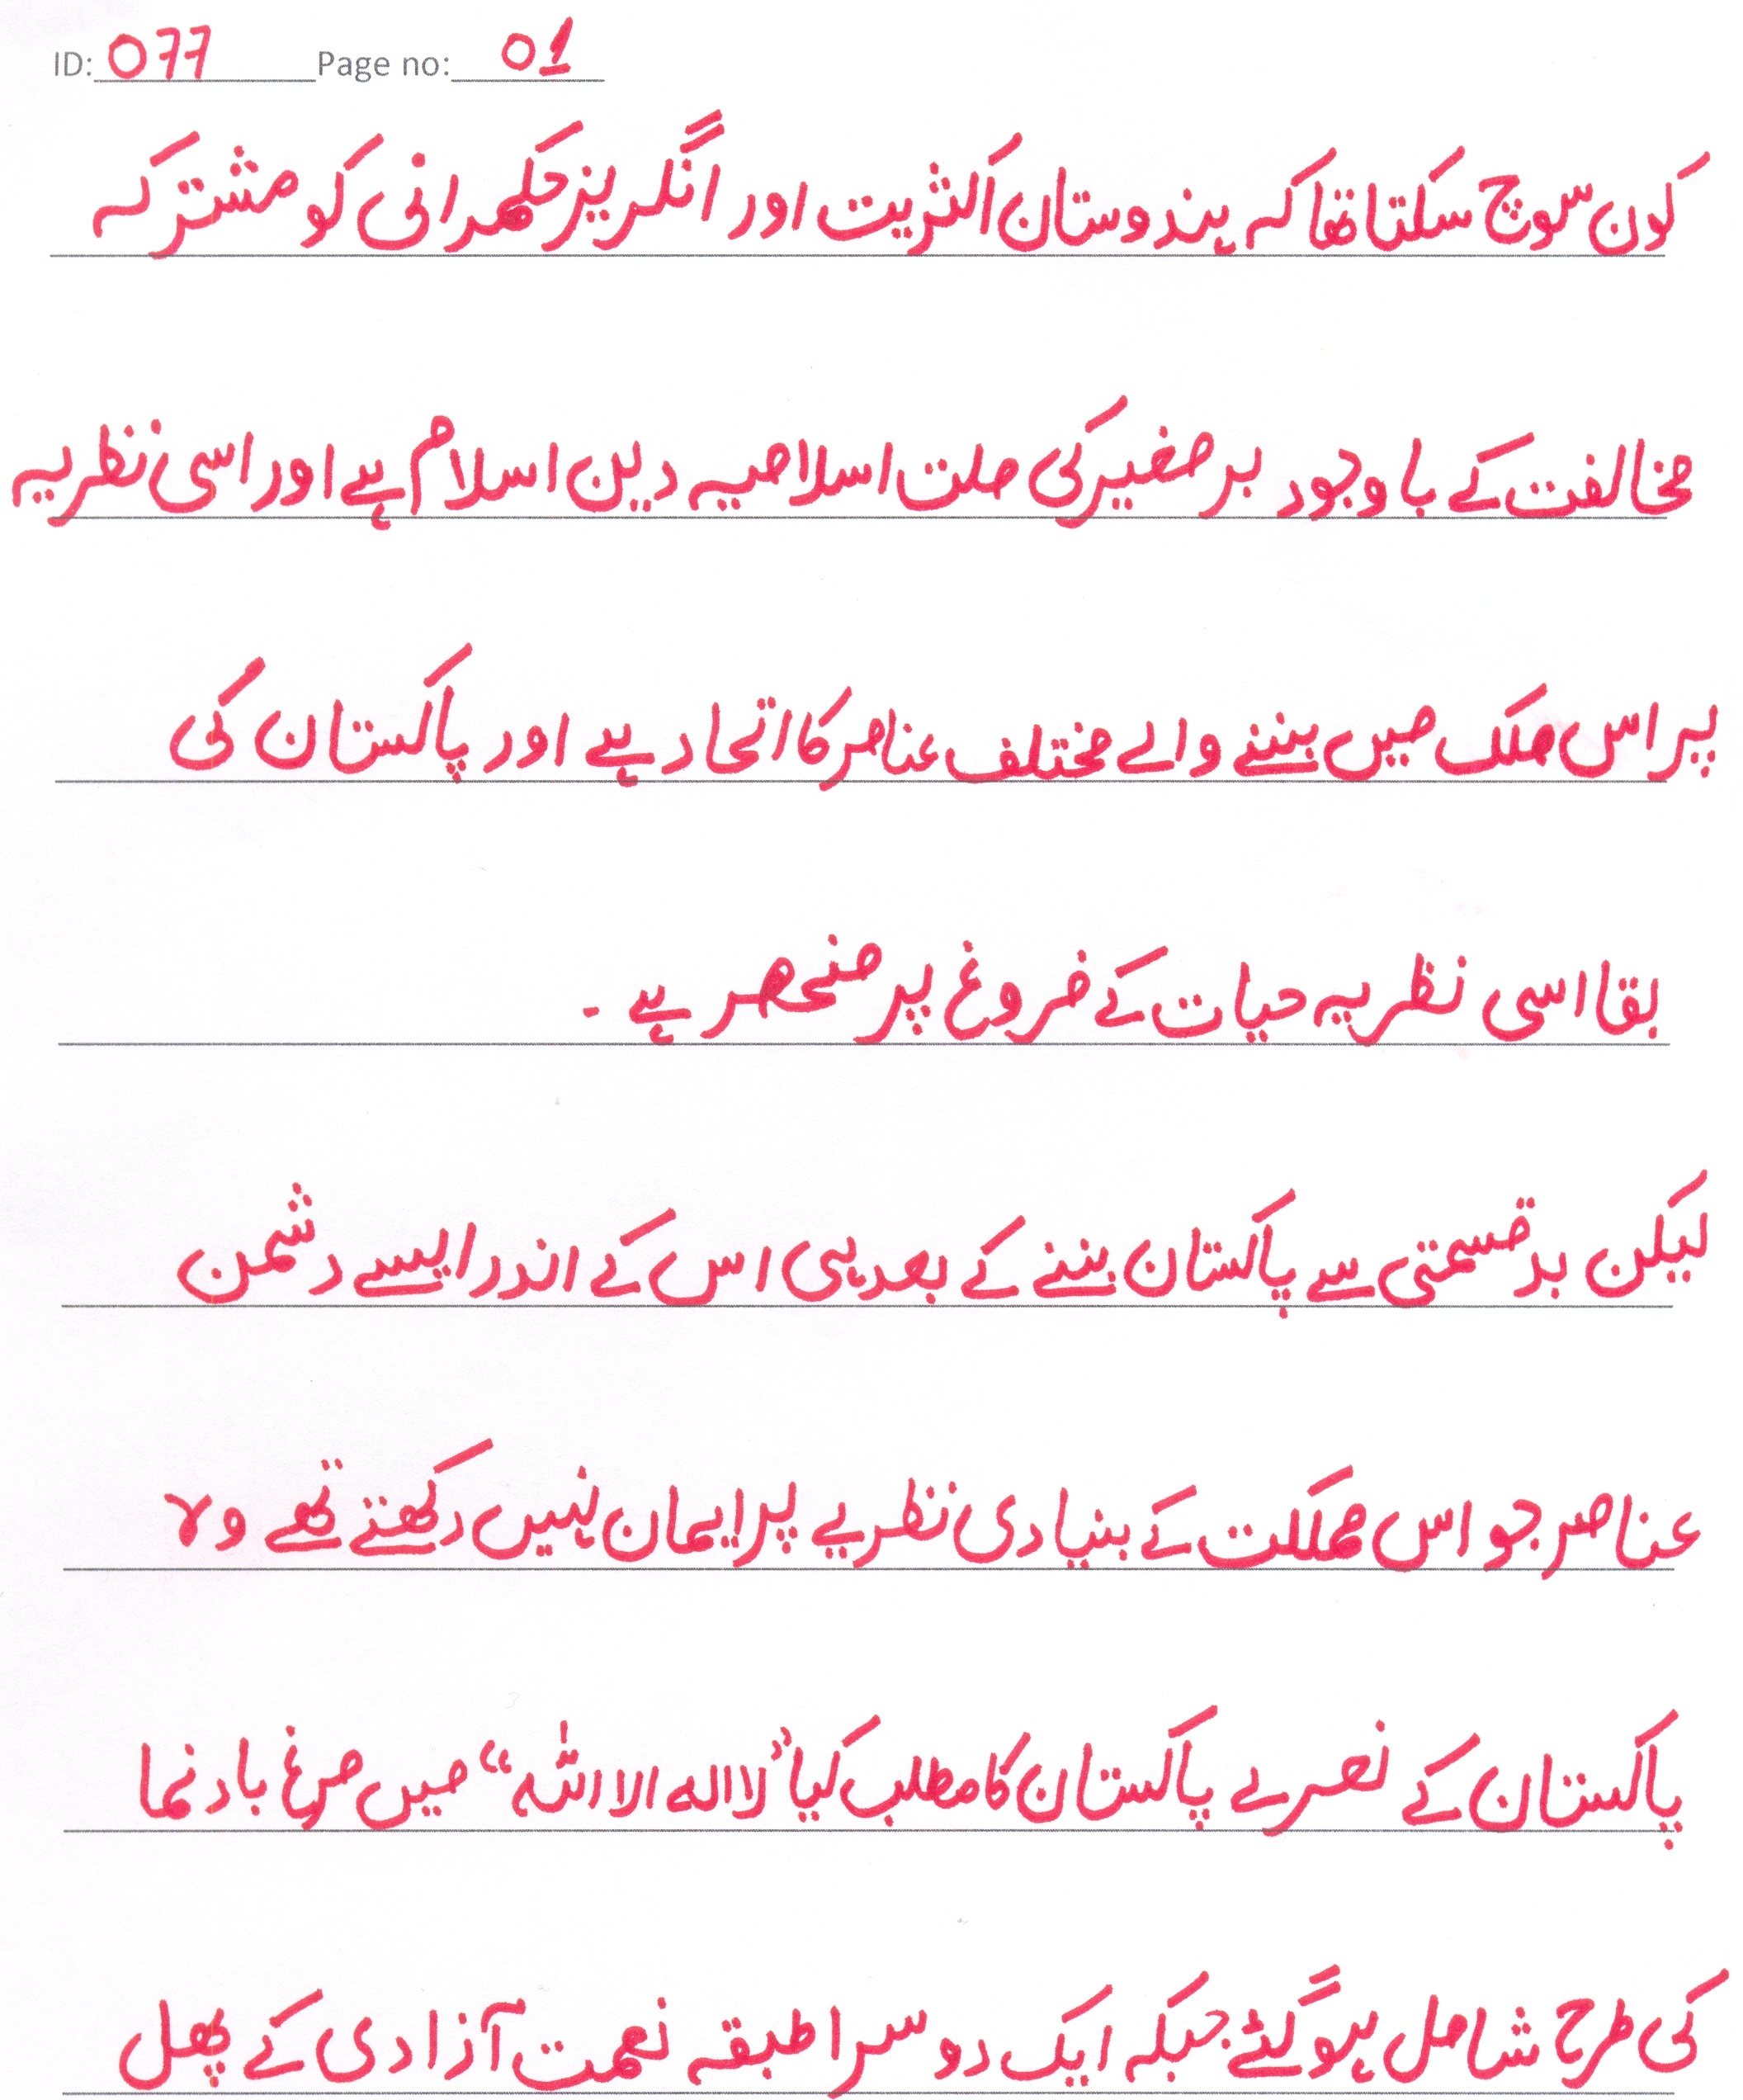 ID: 077 Page no: 01
کون سوچ سکتا تھا کہ ہندوستان اکثریت اور انگریز حکمرانی کو مشترکہ
مخالفت کے باوجود برصغیر کی ملت اسلامیہ دین اسلام ہے اور اسی نظریہ
پر اس ملک میں بننے والے مختلف عناصر کا اتحاد ہے اور پاکستان کی
بقا اسی نظریہ حیات کے فروغ پر منحصر ہے ۔
لیکن بدقسمتی سے پاکستان بننے کے بعد ہی اس کے اندر ایسے دشمن
عناصر جو اس مملکت کے بنیادی نظریے پر ایمان نہیں رکھتے تھے وہ
پاکستان کے نعرے پاکستان کا مطلب کیا ”لا الہ الا اللہ“ میں مرغ باد نما
کی طرح شامل ہو گئے جبکہ ایک دوسرا طبقہ نعمت آزادی کے پھل